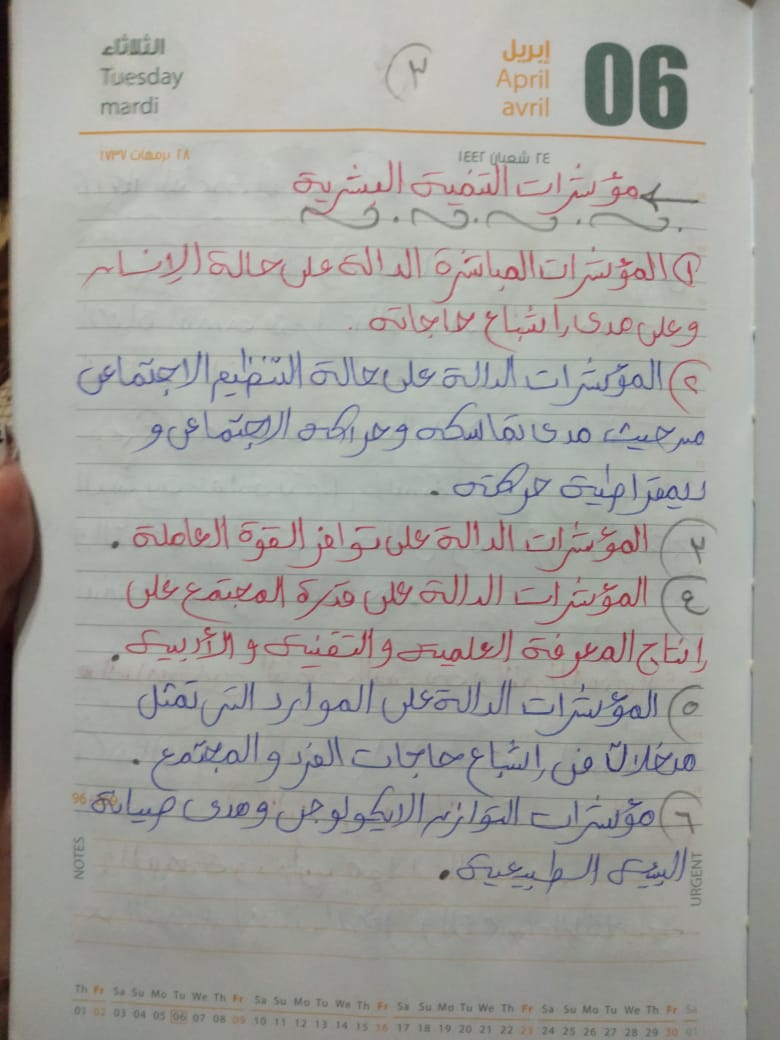 الثلاثاء
Tuesday
mardi
٣
إبريل
April
avril
06
٢٨ برمهات ١٧٣٧
٢٤ شعبان ١٤٤٢
مؤشرات التنمية البشرية
١ المؤشرات المباشرة الدالة على حالة الإنسان
وعلى مدى إشباع حاجاته .
٢ المؤشرات الدالة على حالة التنظيم الاجتماعى
من حيث مدى تماسكه وحراكه الاجتماعى و
ديمقراطية حركته .
٣ المؤشرات الدالة على توافر القوة العاملة .
٤ المؤشرات الدالة على قدرة المجتمع على
إنتاج المعرفة العلمية والتقنية والأدبية .
٥ المؤشرات الدالة على الموارد التى تمثل
مدخلات فى إشباع حاجات الفرد والمجتمع .
٦ مؤشرات التوازن الايكولوجى ومدى صيانة
96
البيئة الطبيعية .
NOTES
URGENT
Th Fr Sa Su Mo Tu We Th Fr Sa Su Mo Tu We Th Fr Sa Su Mo Tu We Th Fr Sa Su Mo Tu We Th Fr Sa
01 02 03 04 05 06 07 08 09 10 11 12 13 14 15 16 17 18 19 20 21 22 23 24 25 26 27 28 29 30 01